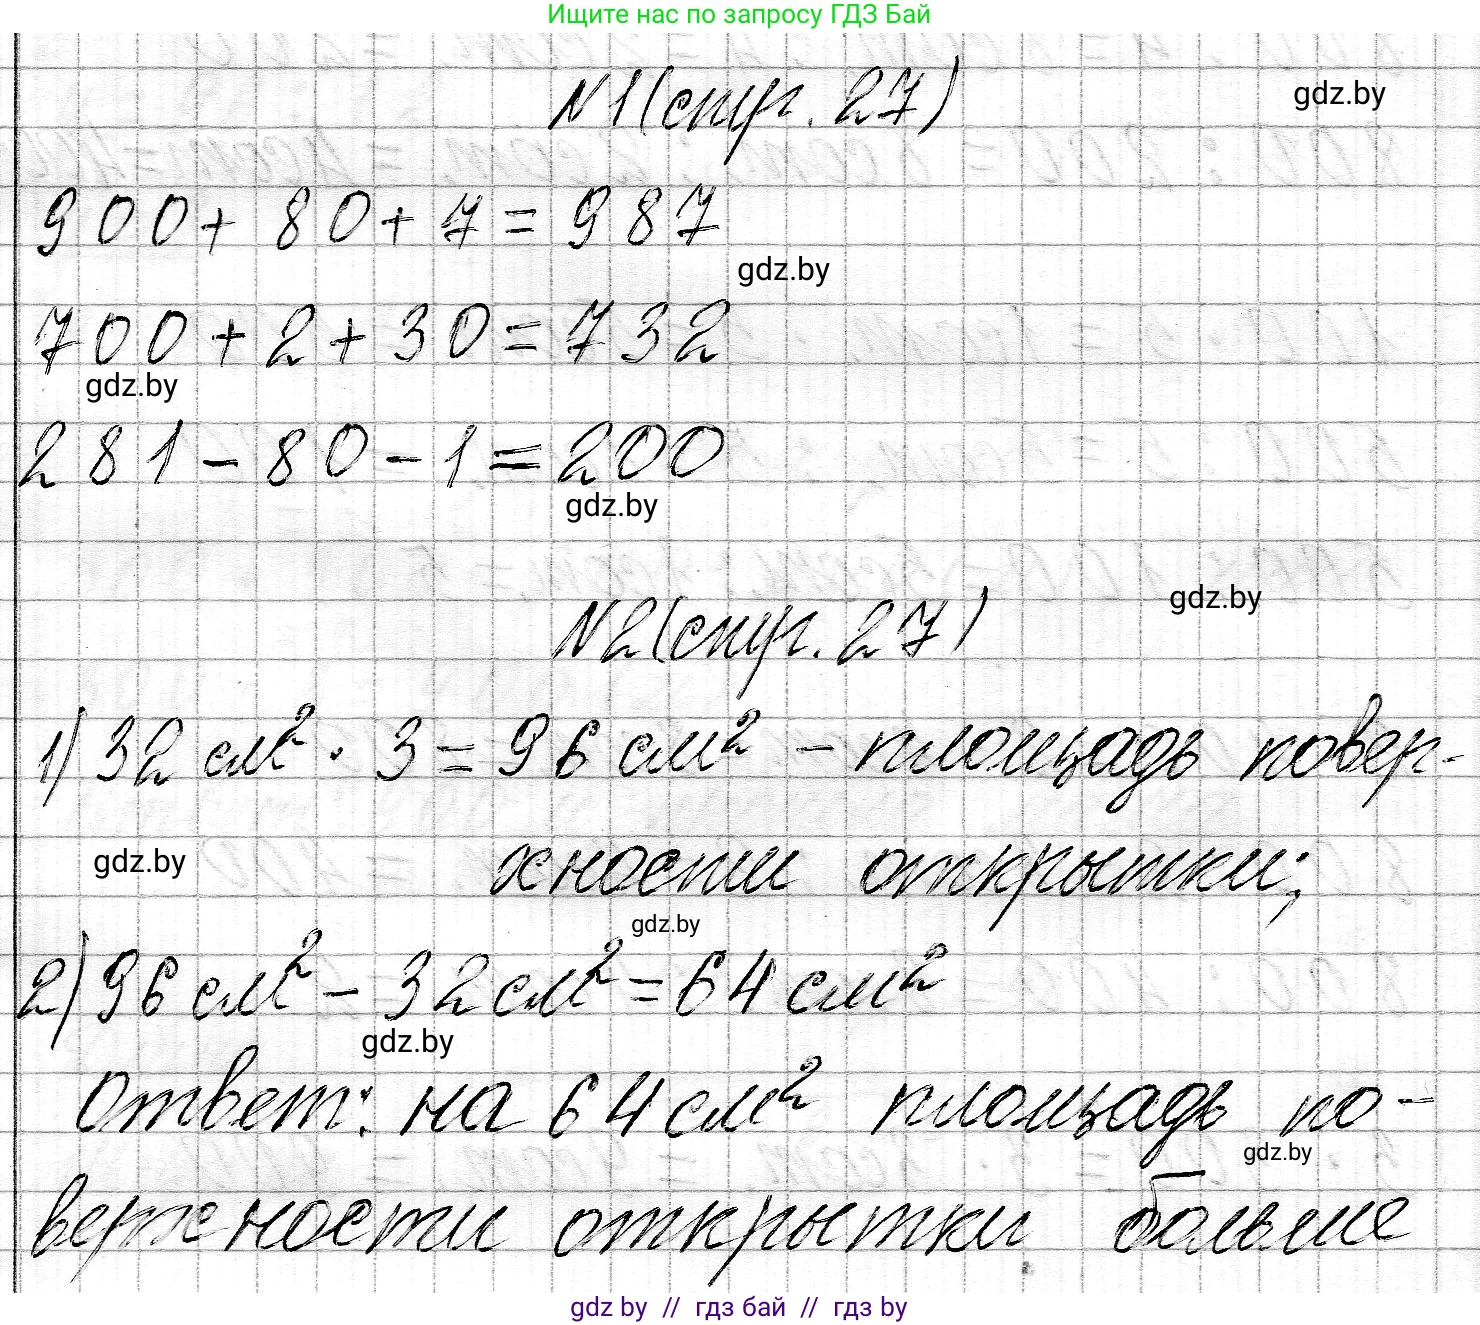 Ищите нас по запросу ГДЗ Бай
N1(стр. 27)
gdz.by
900+ 80+ 7 = 987
gdz.by
700 + 2 + 30 = 732
gdz.by
281 - 80 - 1 = 200
gdz.by
gdz.by
N2(стр. 27)
1) 32 см² · 3 = 96 см² - площадь повер-
gdz.by
хности открытки;
gdz.by
2) 96 см² - 32 см² = 64 см²
gdz.by
Ответ: на 64 см² площадь по-
gdz.by
верхности открытки больше
gdz by // гдз бай // гдз by